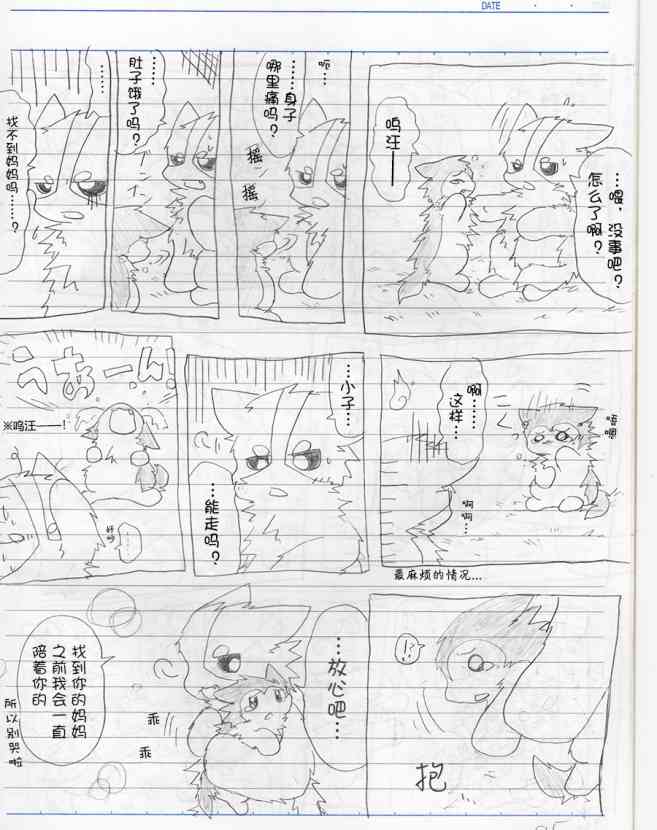 DATE
…喂，没事吧？
怎么了啊？
呜汪——
呃…
……身子
哪里痛吗？
摇
摇
……
肚子饿了吗？
……
找不到妈妈吗……？
唔
嗯
啊……
这样…
啊
啊…
最麻烦的情况...
…小子…
…能走吗？
うあーん!
※呜汪——！
!?
抱
…放心吧…
乖
乖
找到你的妈妈
之前我会一直
陪着你的
所以别哭啦